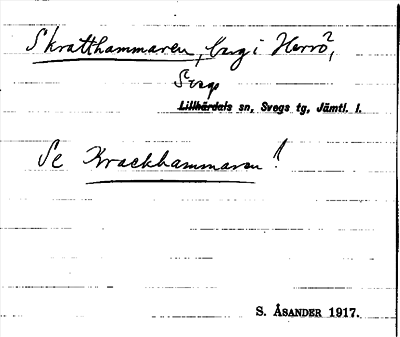 Skratthammaren, berg i Herrö?,
Svegs
Lillhärdals sn, Svegs tg, Jämtl. l.
Se Krackhammaren!
S. ÅSANDER 1917.